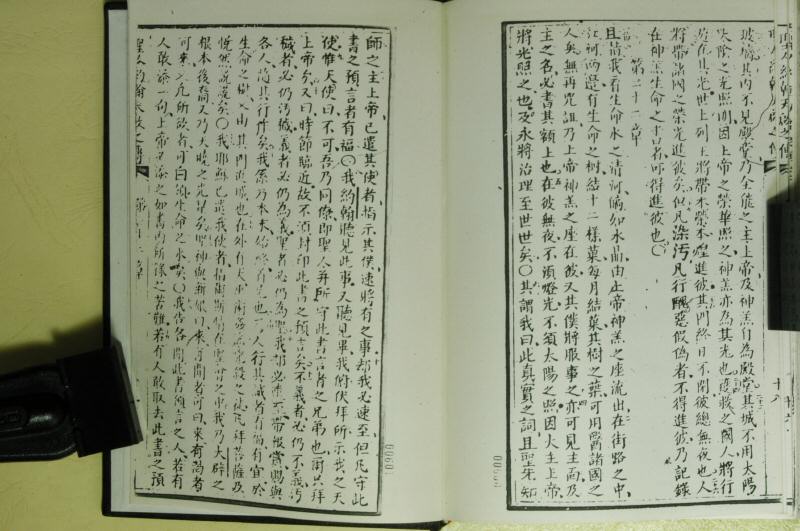 玻璃其內不見殿堂乃全能之主上帝及神羔自為殿堂其城不用太陽
太陰之光照明因上帝之榮華照之神羔亦為其光也受救之國人將行
於在其光世上列王將帶本榮本進彼其門終日不閉彼總無夜也人
將帶諸國之榮光進彼矣但凡染污凡行醜惡假偽者不得進彼乃記錄
在神羔生命之書者可得進彼也〇
第二十二章
且請我看生命水之清河倘如水晶由上帝神羔之座流出在街路之中
江河兩邊有生命之樹結十二樣菓每月結菓其樹之葉可用醫諸國之
人矣無再咒詛乃上帝神羔之座在彼又其僕將服事之亦可見主面及
主之名必書其額上也在彼無夜不須燈光不須太陽之照因夫主上帝
將光照之也及永將治理至世世矣〇其謂我曰此真實之詞且聖先知
師之主上帝已遣其使者指示其僕速將有之事却我必速至但凡守此
書之預言者有福〇我約翰聽見此事又聽見畢我俯伏拜所示我之天
使惟天使曰不可吾乃同僚即聖人并所守此書言者之兄弟也爾其拜
上帝矣又曰時節臨近故不須封印此書之預言矣不義者必仍不義污
穢者必仍污穢義者必仍為義聖者必仍為聖我却必速至帶報賞賜與
各人隨其行作矣我係乃本末始終首先也人行其誡者有福有宜於
生命之樹又由其門進城也在外有犬
根本後裔又乃大曉之光星矣聖神與新娘曰來聞者可曰來有渴者
可來又凡所欲者可白領生命之水矣〇我告各聞此書預言之人若有
人敢添一句上帝必添之如書內所錄之苦難若有人敢取去此書之預
第二十二章